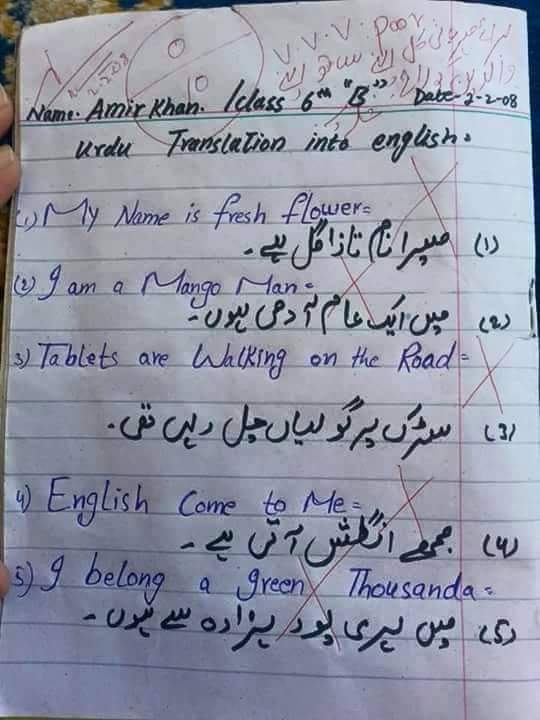 V. V. V. poor
2-2-08
0
10
Name. Amir Khan. /class 6th "B". Date-2-2-08
Urdu Translation into english.
(1) My Name is fresh flower=
(1) میرا نام تازا گل ہے۔
(2) I am a Mango Man=
(2) میں ایک عام آدمی ہوں۔
3) Tablets are Walking on the Road=
(3) سڑک پر گولیاں چل رہی تھی۔
4) English Come to Me=
(4) مجھے انگلش آتی ہے۔
5) I belong a green Thousanda=
(5) میں ہری پور ہزارہ سے ہوں۔